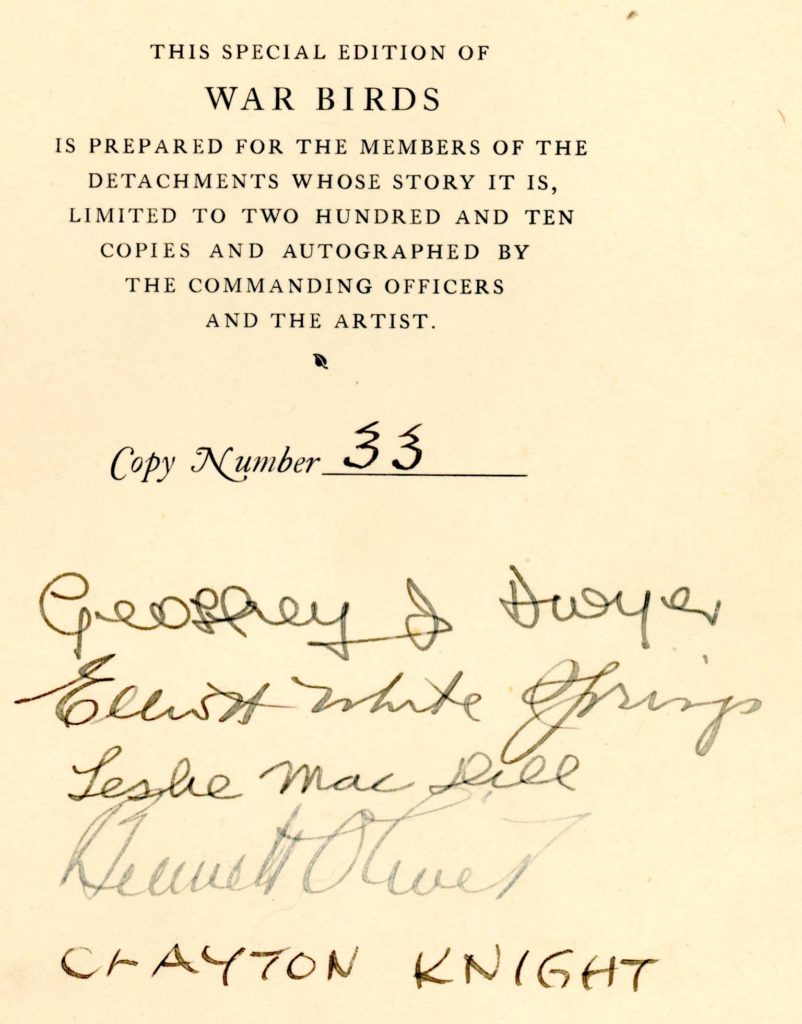 THIS SPECIAL EDITION OF
WAR BIRDS
IS PREPARED FOR THE MEMBERS OF THE
DETACHMENTS WHOSE STORY IT IS,
LIMITED TO TWO HUNDRED AND TEN
COPIES AND AUTOGRAPHED BY
THE COMMANDING OFFICERS
AND THE ARTIST.
Copy Number 33
Geoffrey J Dwyer
Elliott White Springs
Leslie MacDill
Bennett Oliver
CLAYTON KNIGHT